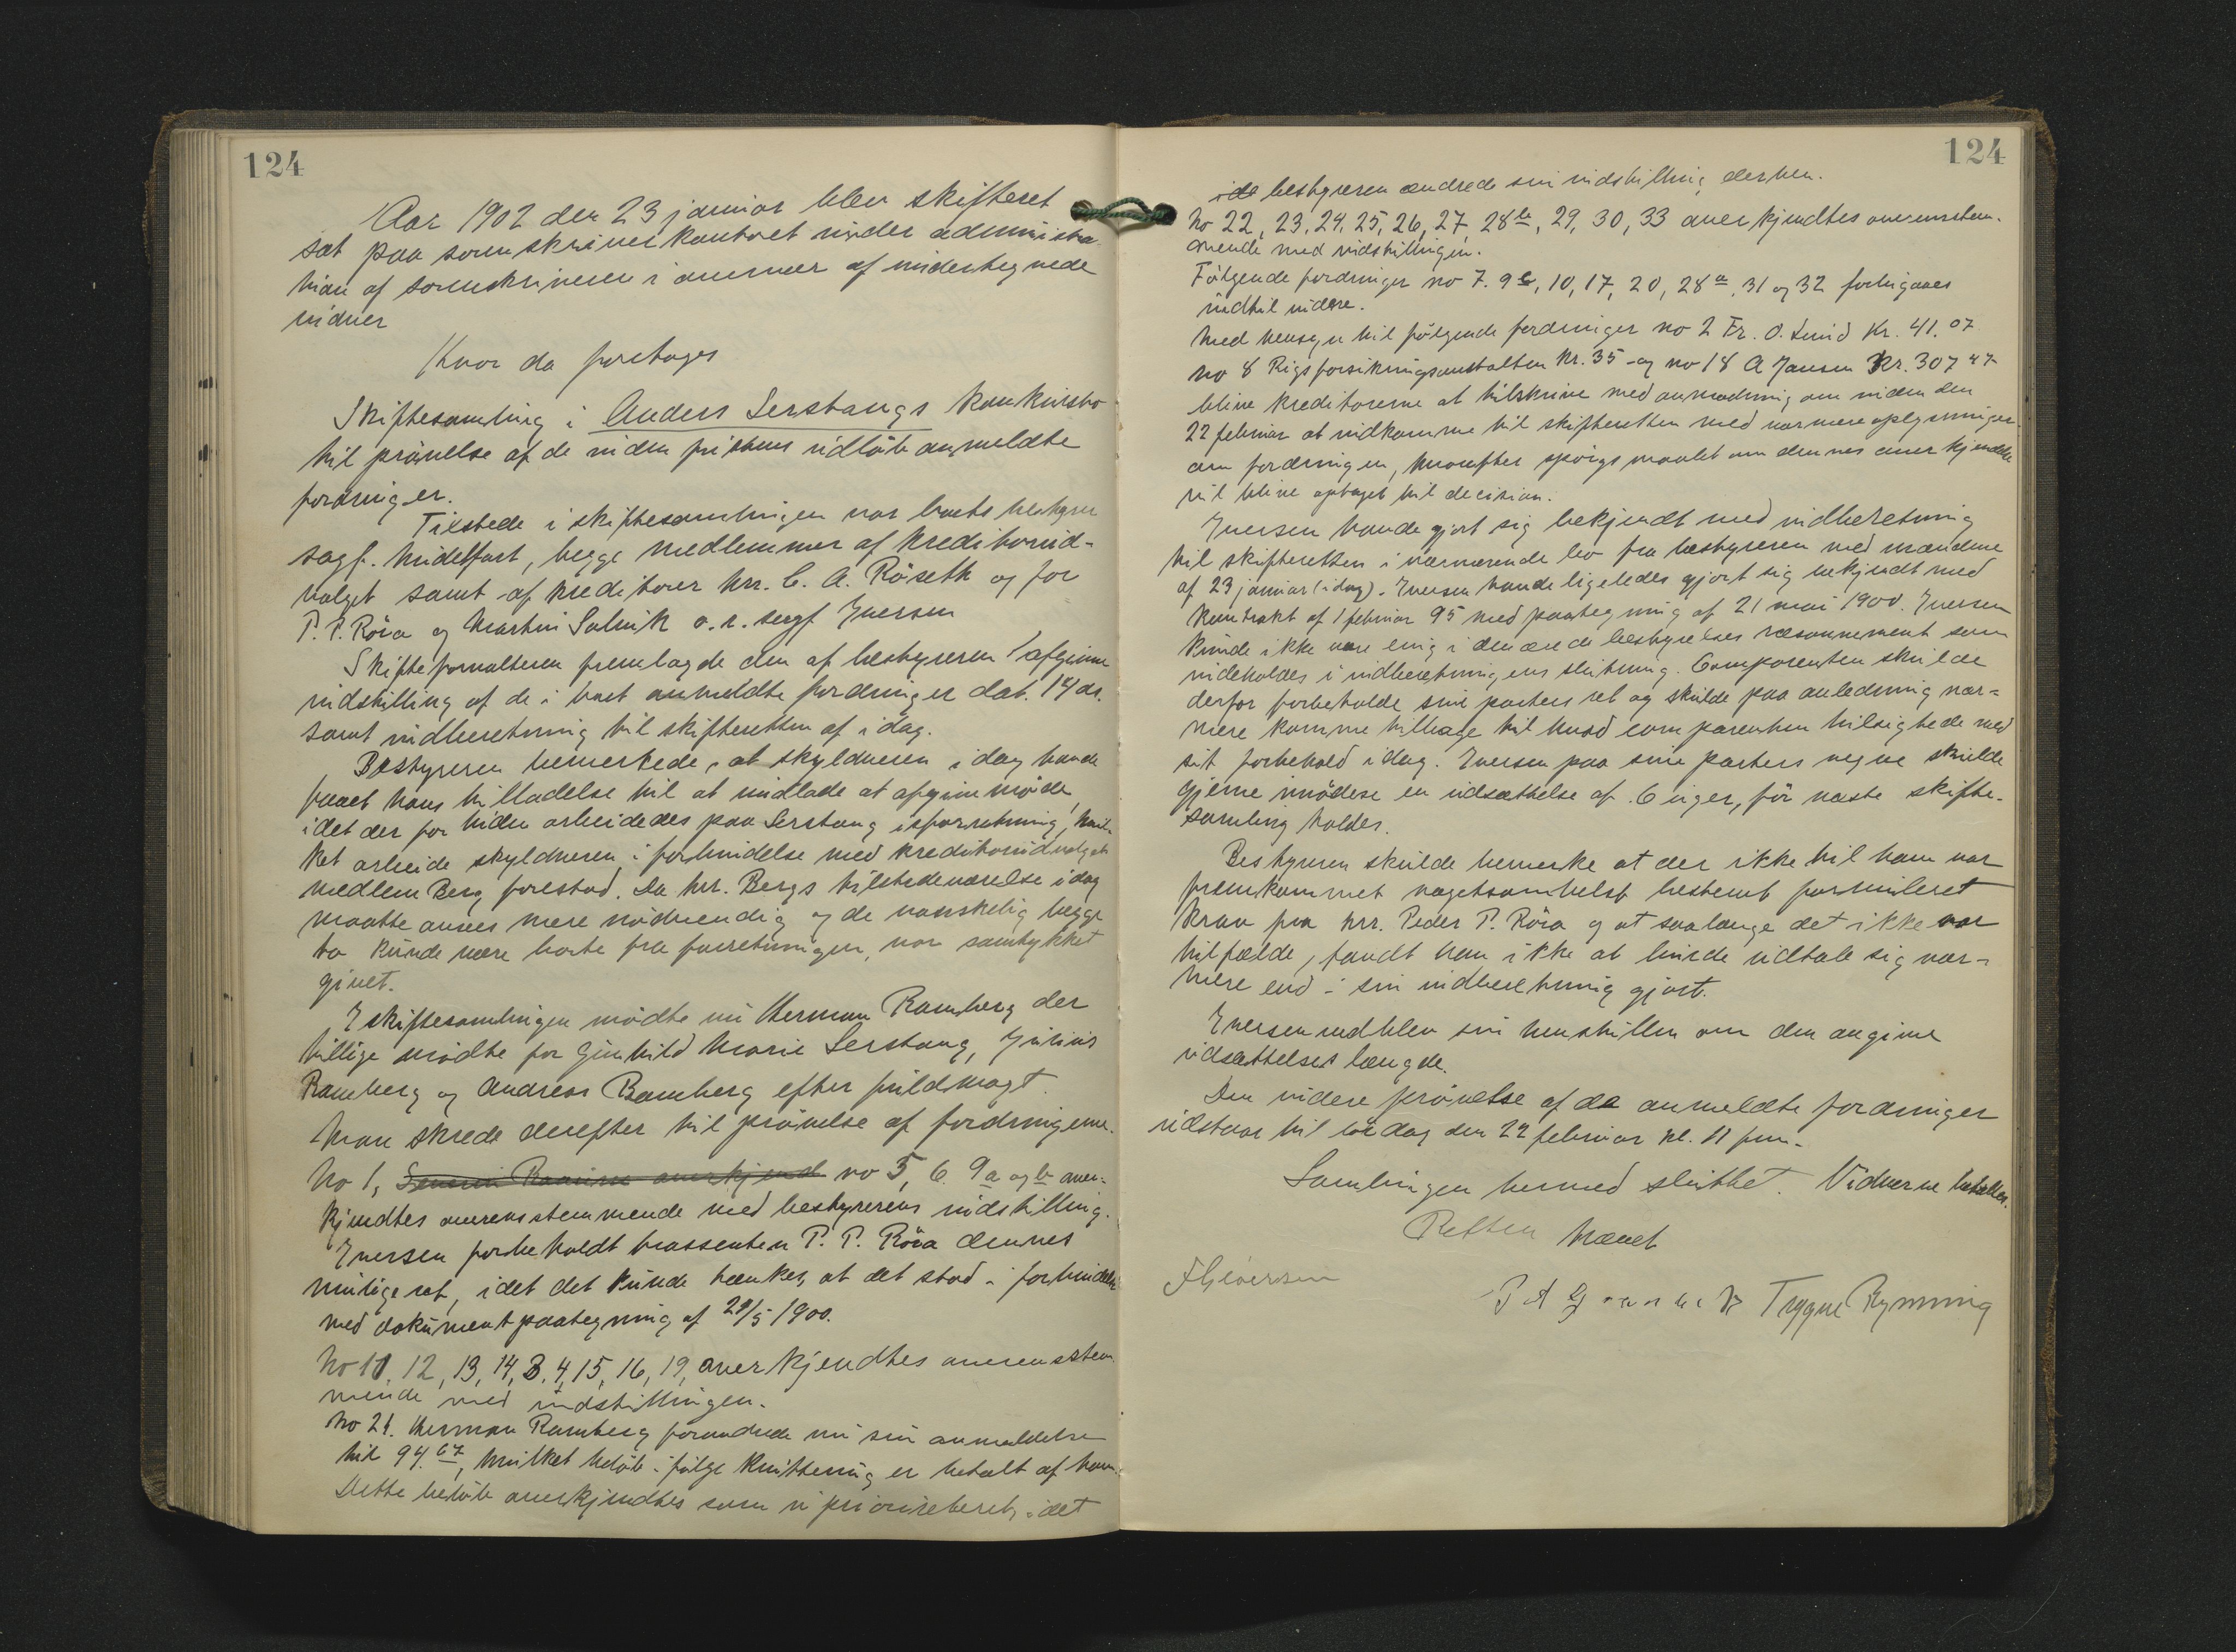 124
Aar 1902 den 23 januar blev skifteret
sat paa sorenskriverkontoret under administra-
tion af sorenskriveren i overvær af undertegnede
vidner
Hvor da foretoges
Skiftesamling i Anders Serstangs konkursbo
til prøvelse af de inden fristens udløb anmeldte
fordringer.
Tilstede i skiftesamlingen var boets bestyrer
sagf. Midelfart, begge medlemmer af kreditorud-
valget samt af kreditorer hrr. C. A. Röseth og for
P. P. Röra og Martin Solvik o.r. sagf Iversen
Skifteforvalteren fremlagde den af bestyreren afgivne
indstilling af de i boet anmeldte fordringer dat. 14 ds.
samt indberetning til skifteretten af idag.
Bestyreren bemerkede, at skyldneren idag havde
faaet hans tilladelse til at undlade at afgive møde,
idet der for tiden arbeidedes paa Serstang isforretning, hvil-
ket arbeide skyldneren i forbindelse med kreditorudvalgets
medlem Berg forestod. Da hrr. Bergs tilstedeværelse idag
maatte ansees mere nødvendig og de vanskelig begge
to kunde være borte fra forretningen, var samtykket
givet.
I skiftesamlingen mødte nu Herman Ramberg der
tillige mødte for Gunhild Marie Serstang, Julius
Ramberg og Andreas Ramberg efter fuldmagt.
Man skred derefter til prøvelse af fordringerne.
No 1, no 5, 6. 9a og b aner-
kjendtes overensstemmende med bestyrerens indstilling.
Iversen forbeholdt trassenten P. P. Röra dennes
mulige ret, idet det kunde tænkes, at det stod i forbindelse
med dokument paategning af 21/5 1900.
No 11, 12, 13, 14, 3, 4, 15, 16, 19, anerkjendtes overensstem-
mende med indstillingen.
No 21. Herman Ramberg forandrede nu sin anmeldelse
til 94.67, hvilket beløb ifølge kvittering er betalt af ham.
Dette beløb anerkjendtes som uprioriteret, idet
124
bestyreren ændrede sin indstilling derhen.
No 22, 23, 24, 25, 26, 27, 28b, 29, 30, 33 anerkjendtes overensstem-
mende med indstillingen.
Følgende fordringer no 7. 9c, 10, 17, 20, 28a, 31 og 32 forbigaaes
indtil videre.
Med hensyn til følgende fordringer no 2 Fr. O. Kr. 41.07
no 8 Rigsforsikringsanstalten kr. 35 - og no 18 A Jansen Kr. 307 47
blive kreditorerne at tilskrive med anmodning om inden den
22 februar at indkomme til skifteretten med nærmere oplysninger
om fordringen, hvorefter spørgsmaalet om dennes anerkjendelse
vil blive optaget til decision.
Iversen havde gjort sig bekjendt med indberetning
til skifteretten i nærværende bo fra bestyreren med mændene
af 23 januar (idag). Iversen havde ligeledes gjort sig bekjendt med
kontrakt af 1 februar 95 med paategning af 21 mai 1900. Iversen
kunde ikke være enig i den ærede bestyrelses ræsonnement som
indeholdes i indberetningens slutning. Comparenten skulde
derfor forbeholde sine parters ret og skulde paa anledning nær-
mere komme tilbage til hvad comparenten tilsigtede med
sit forbehold idag. Iversen paa sine parters vegne skulde
gjerne imødese en udsættelse af 6 uger, før næste skifte-
samling holdes.
Bestyreren skulde bemerke at der ikke til ham var
fremkommet nogetsomhelst bestemt formuleret
krav fra hrr. Peder P. Röra og at saalænge det ikke var
tilfælde, fandt han ikke at burde udtale sig nær-
mere end i sin indberetning gjort.
Iversen vedblev sin henstillen om den angivne
udsættelses længde.
Den videre prøvelse af de anmeldte fordringer
udstaar til lørdag den 22 februar kl. 11 fm.
Samlingen hermed sluttet. Vidnerne betaltes.
Retten hævet
Trygve Rynning